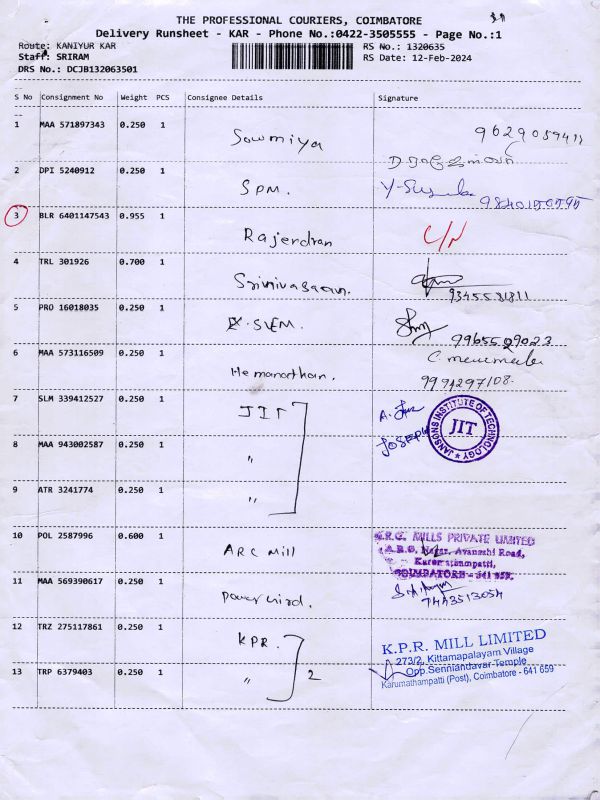 THE PROFESSIONAL COURIERS, COIMBATORE
Delivery Runsheet - KAR - Phone No.:0422-3505555 - Page No.:1
Route: KANIYUR KAR
RS No.: 1320635
Staff: SRIRAM
RS Date: 12-Feb-2024
DRS No.: DCJB132063501
S No Consignment No Weight PCS Consignee Details Signature
1 MAA 571897343 0.250 1 Sowmiya
2 DPI 5240912 0.250 1 SPM.
3 BLR 6401147543 0.955 1 Rajendran
4 TRL 301926 0.700 1 Srinivasan. 9345581811
5 PRO 16018035 0.250 1 SVEM. 9965509023
6 MAA 573116509 0.250 1 Hemanathan. 9991297108.
7 SLM 339412527 0.250 1 JIT A.
JOSEPH
JANSONS INSTITUTE OF TECHNOLOGY
JIT
8 MAA 943002587 0.250 1 "
9 ATR 3241774 0.250 1 "
10 POL 2587996 0.600 1 ARC Mill
A.R.C. MILLS PRIVATE LIMITED
A.R.C. Nagar, Avanashi Road,
Karumathampatti,
COIMBATORE - 641 659.
11 MAA 569390617 0.250 1 7443513054
12 TRZ 275117861 0.250 1 KPR.
13 TRP 6379403 0.250 1 " 2
K.P.R. MILL LIMITED
273/2, Kittampalayam Village
Opp.Senniandavar Temple
Karumathampatti (Post), Coimbatore - 641 659